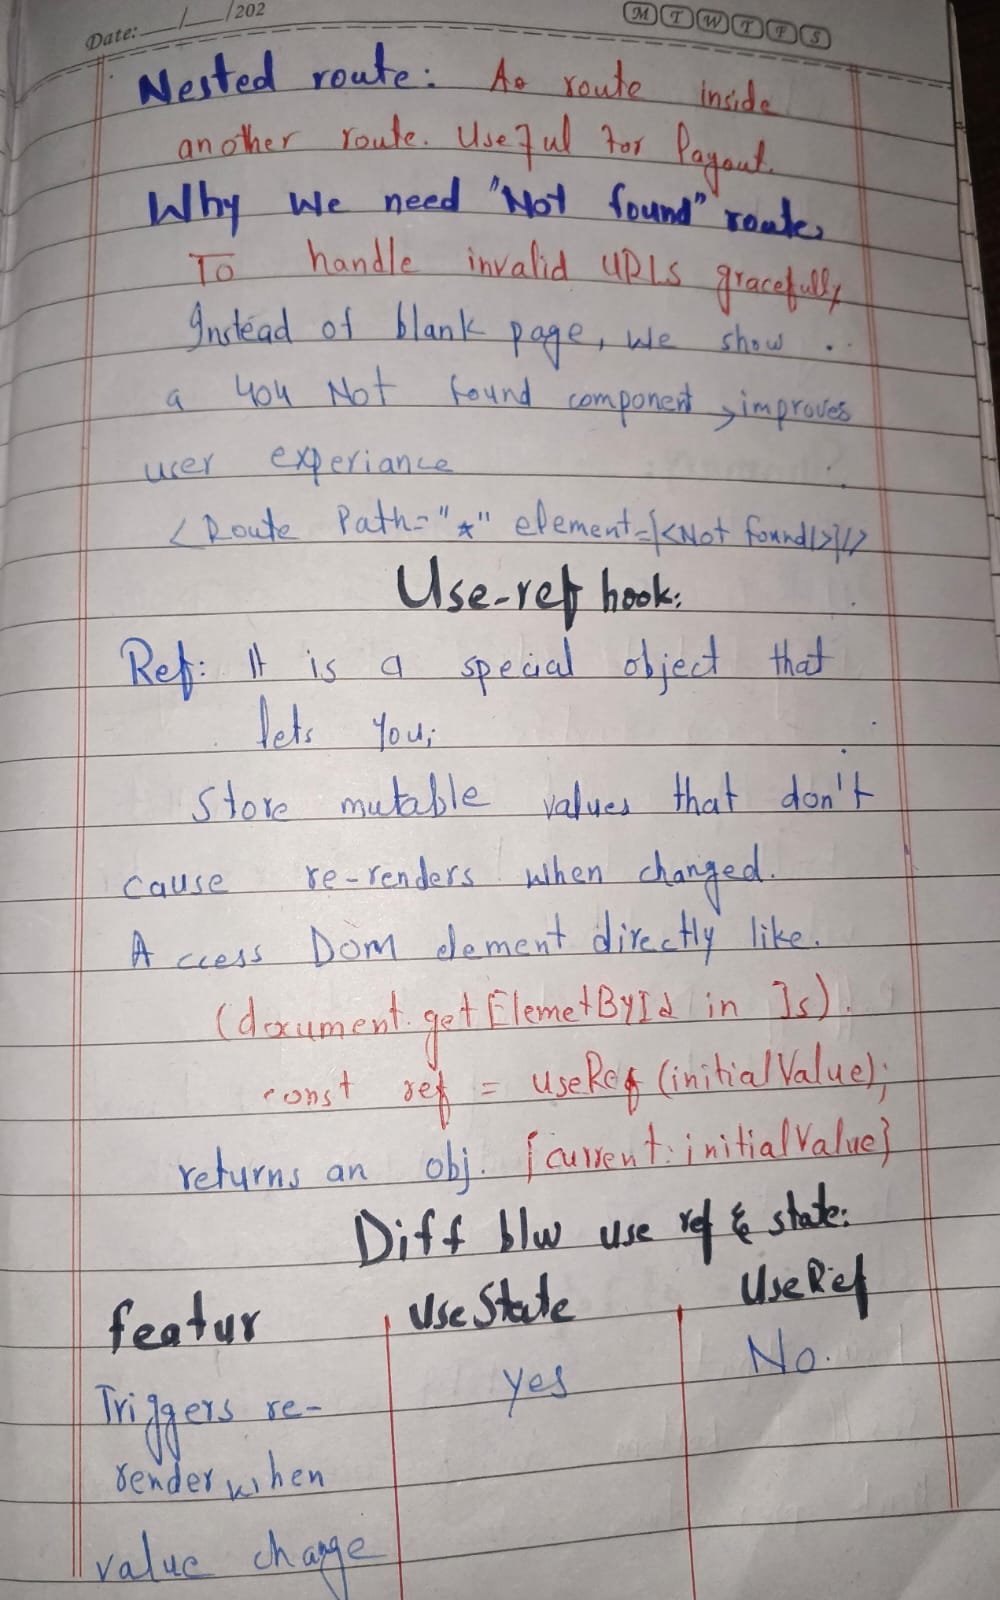 Date: __/__/202
M T W T F S
Nested route: A route inside
another route. Useful for Payout.
Why We need "Not found" route,
To handle invalid URLs gracefully
Instead of blank page, we show ..
a 404 Not found component, improves
user experiance
<Route Path="*" element={<Not found/>}/>
Use-ref hook:
Ref: It is a special object that
lets You;
Store mutable values that don't
cause re-renders when changed.
Access DOM element directly like.
(document.getElemetById in Js).
const ref = useRef (initialValue);
returns an obj. {current: initialValue}
Diff b/w use ref & state:
featur UseState UseRef
Triggers re- yes No.
render when
value change